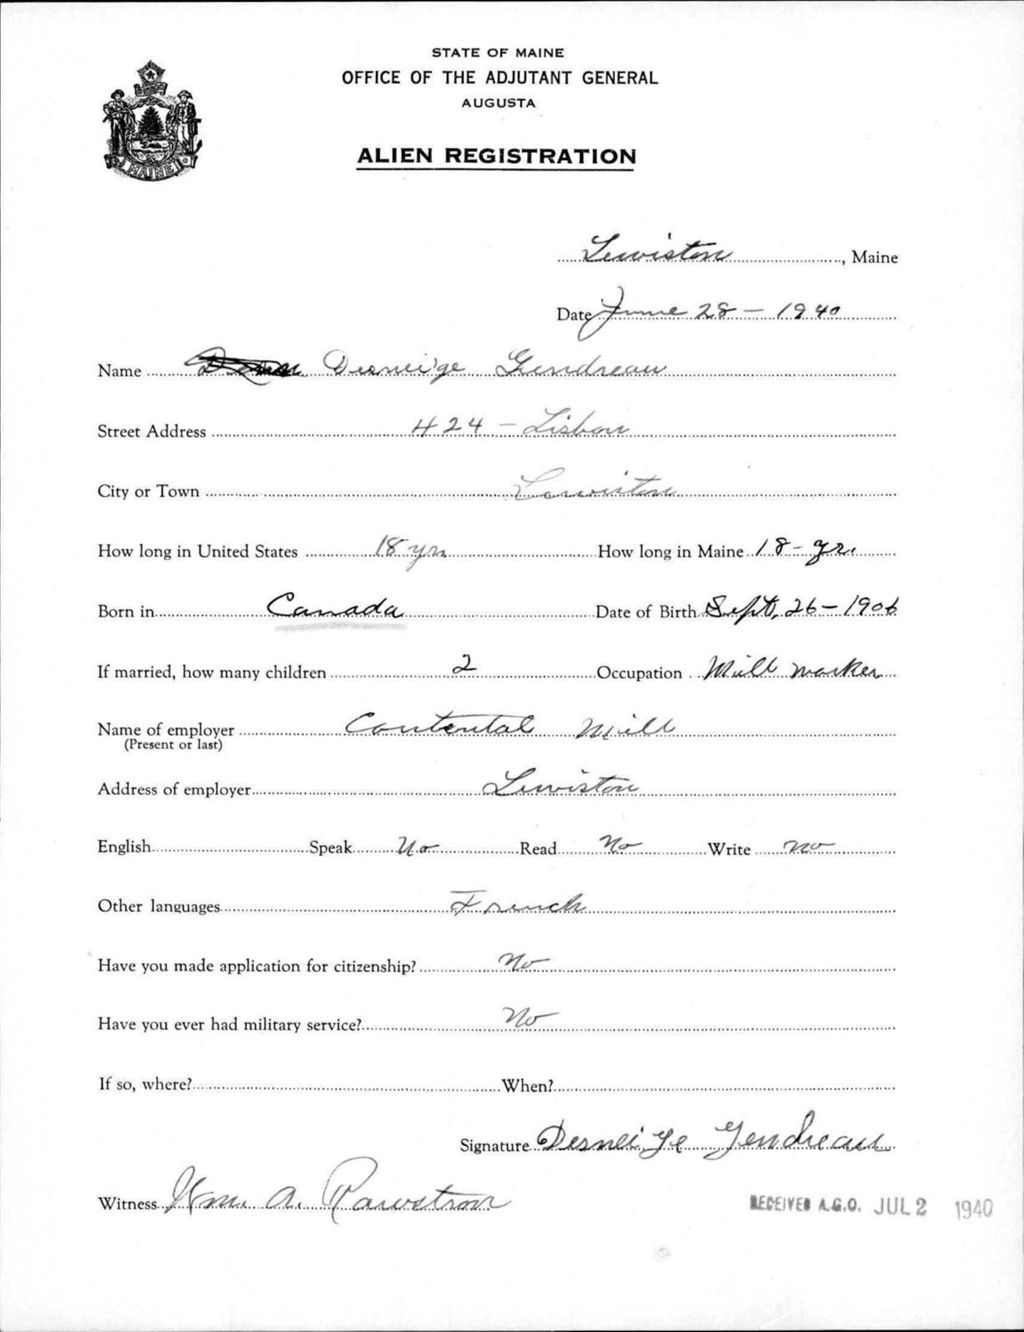 STATE OF MAINE
OFFICE OF THE ADJUTANT GENERAL
AUGUSTA
ALIEN REGISTRATION
MAINE
Lewiston, Maine
Date June 28 - 1940
Name Desneige Gendreau
Street Address 424 - Lisbon
City or Town Lewiston
How long in United States 18 yrs How long in Maine 18 - yr.
Born in Canada Date of Birth Sept, 26 - 1906
If married, how many children 2 Occupation Mill worker
Name of employer Contental Mill
(Present or last)
Address of employer Lewiston
English Speak No Read No Write no
Other languages French
Have you made application for citizenship? No
Have you ever had military service? No
If so, where? When?
Signature Desneige Gendreau
Witness Wm. A. Rawstron
RECEIVED A.G.O. JUL 2 1940